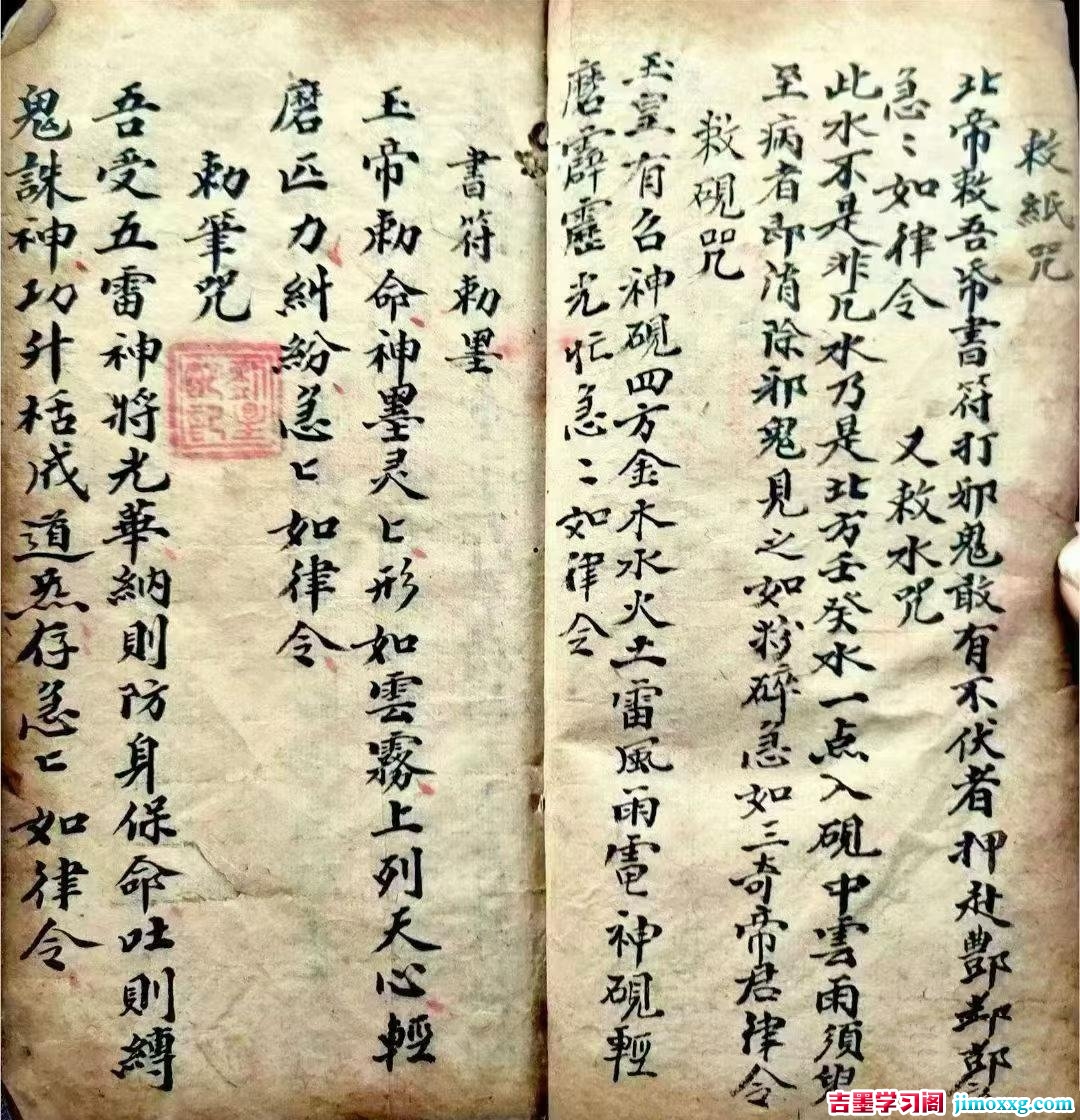 敕紙咒
北帝敕吾帋書符打邪鬼敢有不伏者押赴酆都
急〻如律令 又敕水咒
此水不是非凡水乃是北方壬癸水一点入硯中雲雨須臾
至病者即消除邪鬼見之如粉碎急如三奇帝君律令
敕硯咒
玉皇有召神硯四方金木水火土雷風雨電神硯輕
磨霹靂光忙急〻如律令
書符勅墨
玉帝勅命神墨灵匕形如雲霧上列天心輕
磨匹力糾紛急匕如律令
勅筆咒
吾受五雷神將光華納則防身保命吐則縛
鬼誅神功升栝成道炁存急匕如律令
吉墨学习阁 jimoxxg.com